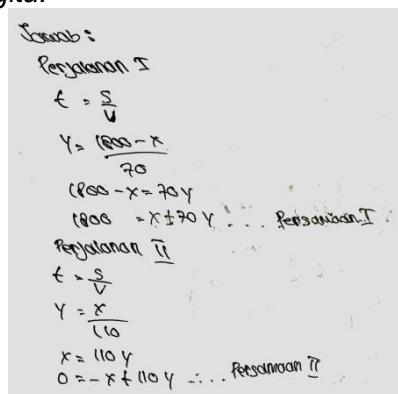 Jawab :
Perjalanan I
t = S
V
Y = 1800 - x
70
1800 - x = 70 y
1800 = x + 70 y . . . Persamaan I
Perjalanan II
t = S
V
Y = x
110
x = 110 y
0 = - x + 110 y . . . Persamaan II